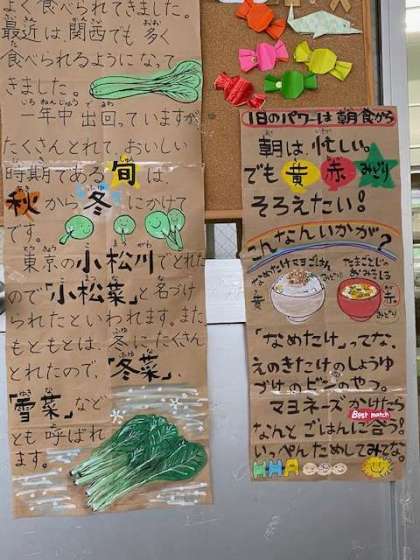 よく食べられてきました。
最近は関西でも多く
食べられるようになって
きました。
一年中出回っていますが、
たくさんとれて、おいしい
時期である旬は、
秋から冬にかけて
です。
東京の小松川でとれた
ので「小松菜」と名づけ
られたといわれます。また
もともとは、冬にたくさん
とれたので、「冬菜」、
「雪菜」など
とも呼ばれ
ます。
1日のパワーは朝食から
朝は忙しい。
でも黄赤みどり
そろえたい！
こんなんいかが？
なめたけマヨごはん
たまごとじの
おみそしる
黄
みどり
赤
みどり
「なめたけ」ってな、
えのきたけのしょうゆ
づけのビンのやつ。
マヨネーズかけたら
Best match
なんとごはんに合う！
いっぺんためしてみてな。